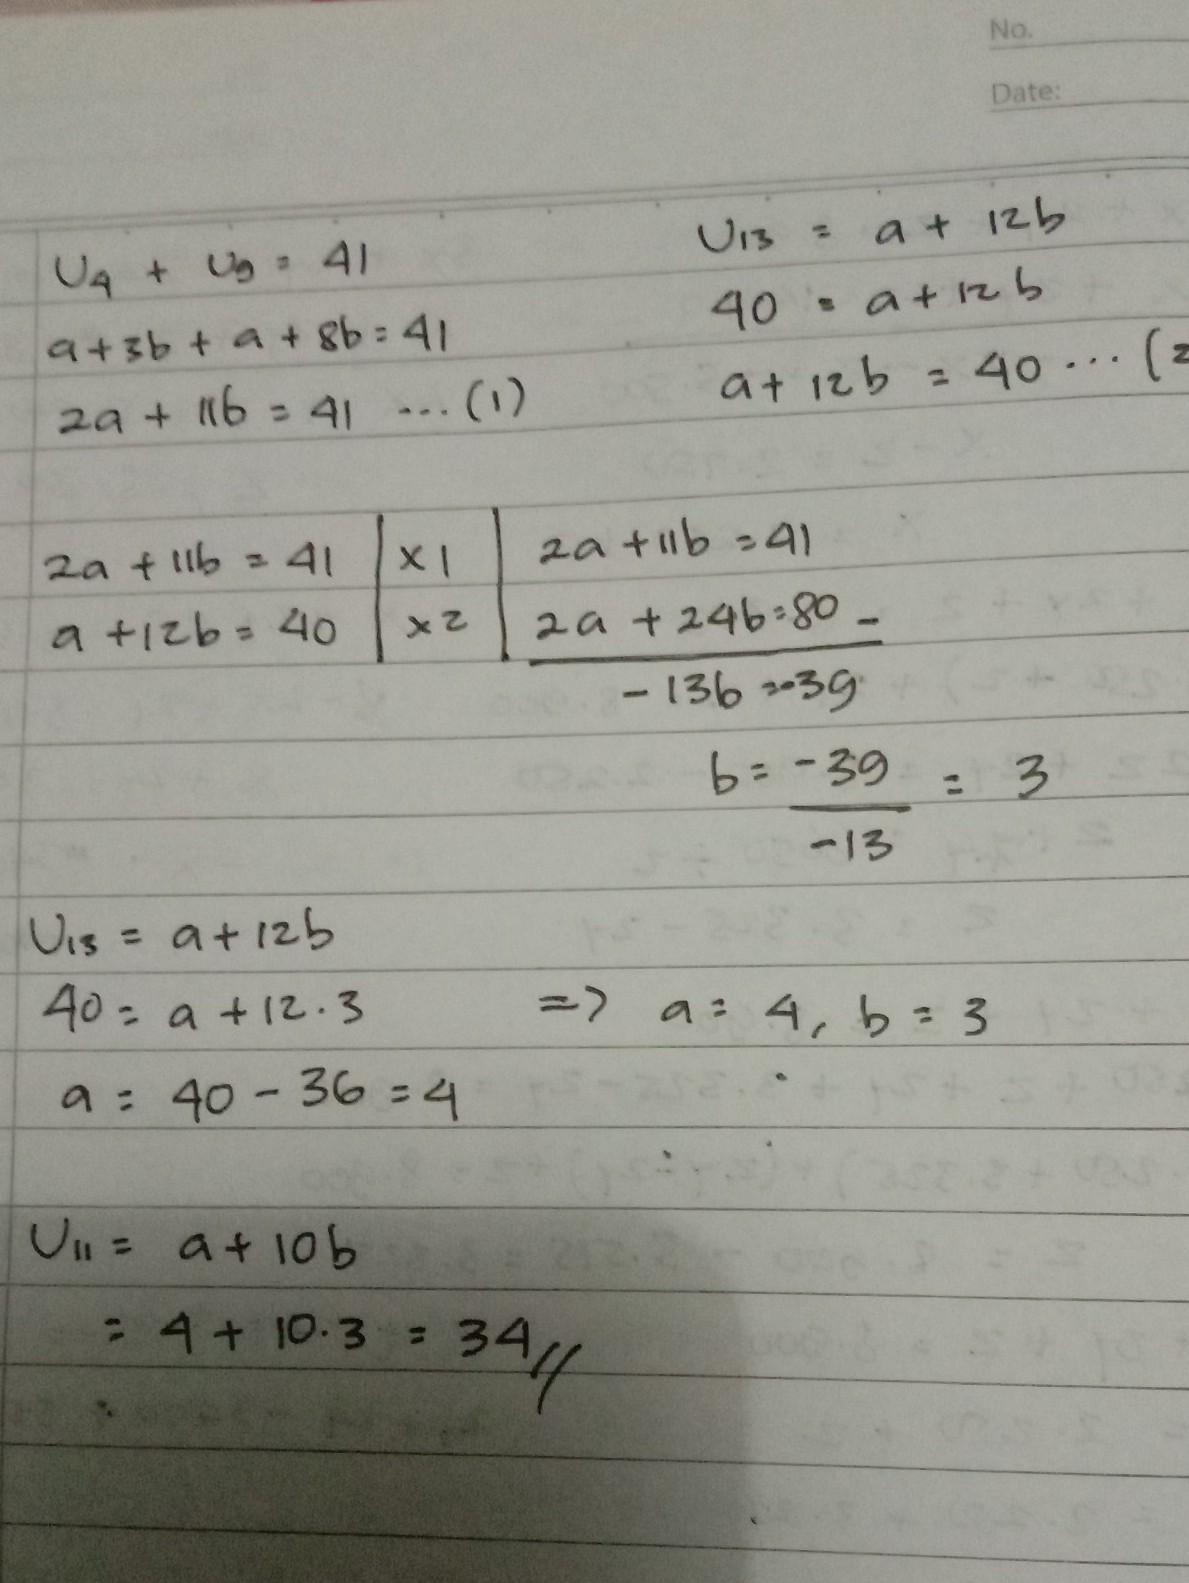 No.
Date:
U4 + U9 = 41
a+3b + a + 8b = 41
2a + 11b = 41 ... (1)
U13 = a + 12b
40 = a + 12b
a + 12b = 40 ... (2
2a + 11b = 41 | x1 | 2a + 11b = 41
a + 12b = 40 | x2 | 2a + 24b = 80 -
-13b = -39
b = -39 = 3
-13
U13 = a + 12b
40 = a + 12.3 => a = 4, b = 3
a = 40 - 36 = 4
U11 = a + 10b
= 4 + 10.3 = 34 //